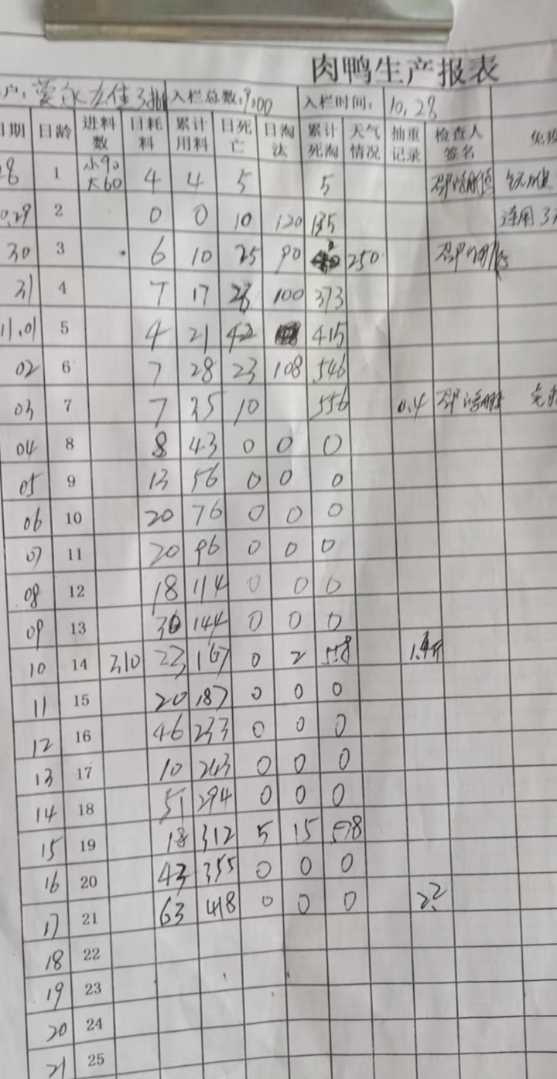 肉鸭生产报表
入栏总数: 9,00 入栏时间: 10,28
日期 日龄 进料数 日耗料 累计用料 日死亡 日淘汰 累计死淘 天气情况 抽重记录 检查人签名
8 1 小90 大60 4 4 5 5
0,29 2 0 0 10 120 135 连用3
30 3 6 10 25 90 250
31 4 7 17 23 100 373
11,01 5 4 21 42 415
02 6 7 28 23 108 546
03 7 7 35 10 556 0.4
04 8 8 43 0 0 0
05 9 13 56 0 0 0
06 10 20 76 0 0 0
07 11 20 96 0 0 0
08 12 18 114 0 0 0
09 13 30 144 0 0 0
10 14 310 23 167 0 2 558
11 15 20 187 0 0 0
12 16 46 233 0 0 0
13 17 10 243 0 0 0
14 18 51 294 0 0 0
15 19 18 312 5 15 578
16 20 43 355 0 0 0
17 21 63 418 0 0 0 2.2
18 22
19 23
20 24
21 25